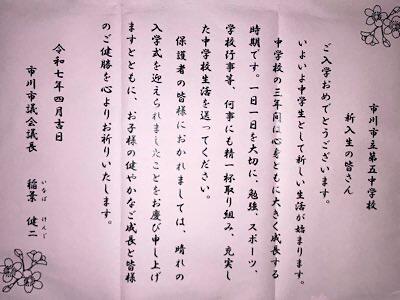 市川市立第五中学校
新入生の皆さん
ご入学おめでとうございます。
いよいよ中学生として新しい生活が始まります。
中学校の三年間に心身ともに大きく成長する
時期です。一日一日を大切に、勉強、スポーツ、
学校行事等、何事にも精一杯取り組み、充実し
た中学校生活を送ってください。
保護者の皆様におかれましては、晴れの
入学式を迎えられましたことをお慶び申し上げ
ますとともに、お子様の健やかなご成長と皆様
のご健勝を心よりお祈りいたします。
令和七年四月吉日
市川市議会議長 稲葉 健二
いなば けんじ